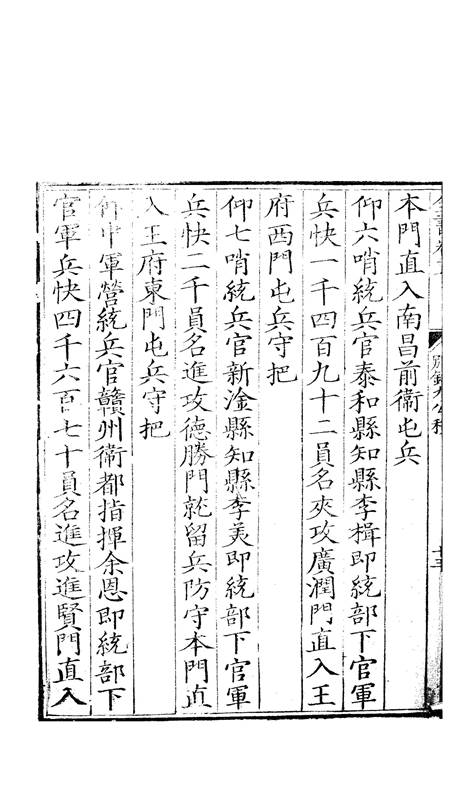 本門直入南昌前衛屯兵
仰六哨統兵官泰和縣知縣李楫即統部下官軍
兵快一千四百九十二員名夾攻廣潤門直入王
府西門屯兵守把
仰七哨統兵官新淦縣知縣李美即統部下官軍
兵快二千員名進攻德勝門就留兵防守本門直
入王府東門屯兵守把
仰中軍營統兵官贛州衛都指揮余恩即統部下
官軍兵快四千六百七十員名進攻進賢門直入